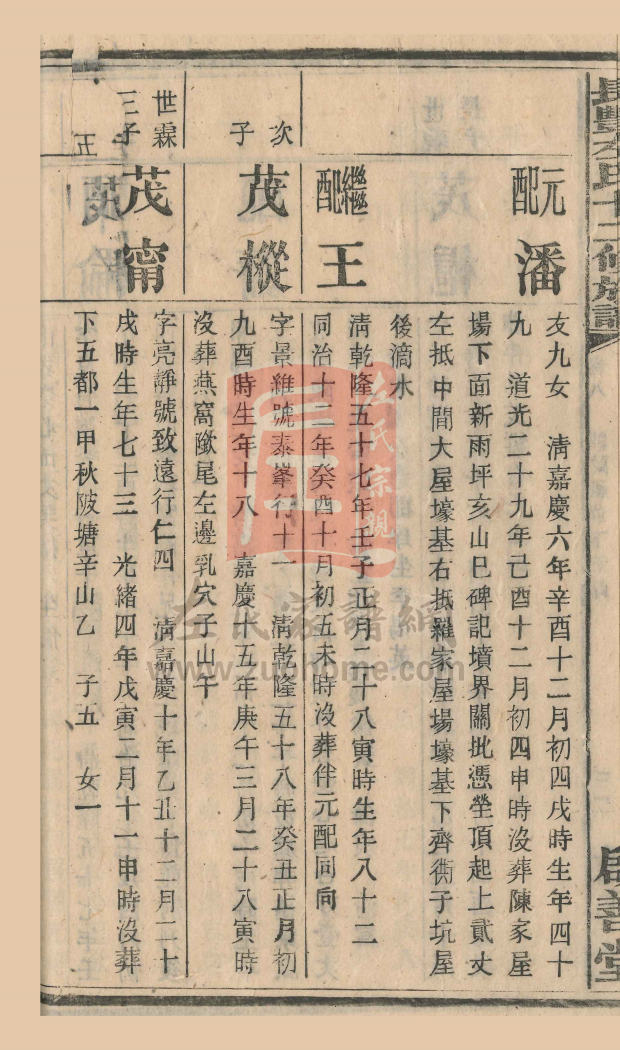 長豐左氏十二修族譜
啟善堂
元配潘
友九女 淸嘉慶六年辛酉十二月初四戌時生年四十
九 道光二十九年己酉十二月初四申時沒葬陳家屋
場下面新雨坪亥山巳碑記墳界關批憑塋頂起上貳丈
左抵中間大屋壕基右抵羅家屋場壕基下齊衖子坑屋
後滴水
繼配王
淸乾隆五十七年壬子正月二十八寅時生年八十二
同治十二年癸酉十月初五未時沒葬伴元配同向
次子
茂樅
字景維號泰峯行十一 淸乾隆五十八年癸丑正月初
九酉時生年十八 嘉慶十五年庚午三月二十八寅時
沒葬燕窩歘尾左邊乳穴子山午
世霖三子
茂甯
字亮靜號致遠行仁四 淸嘉慶十年乙丑十二月二十
戌時生年七十三 光緒四年戊寅二月十一申時沒葬
下五都一甲秋陂塘辛山乙 子五 女一
左氏宗親
左氏家譜網
www.zuohome.com